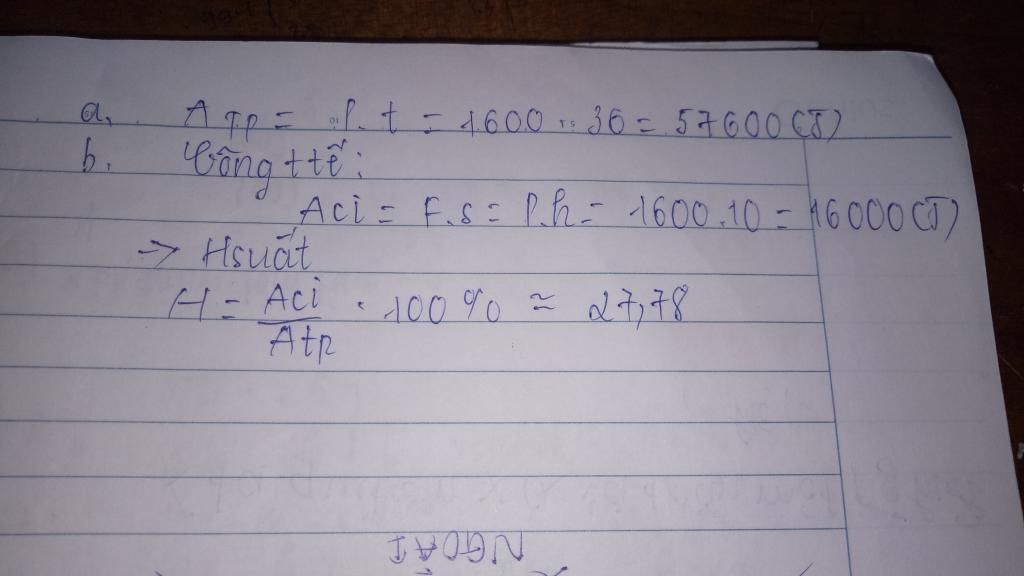 a, A TP = P. t = 1600 . 36 = 57600 (J)
b. Công ttế:
Aci = F.s = P.h = 1600.10 = 16000 (J)
-> Hsuất
H = Aci/Atp . 100 % ≈ 27,78
NGOAI